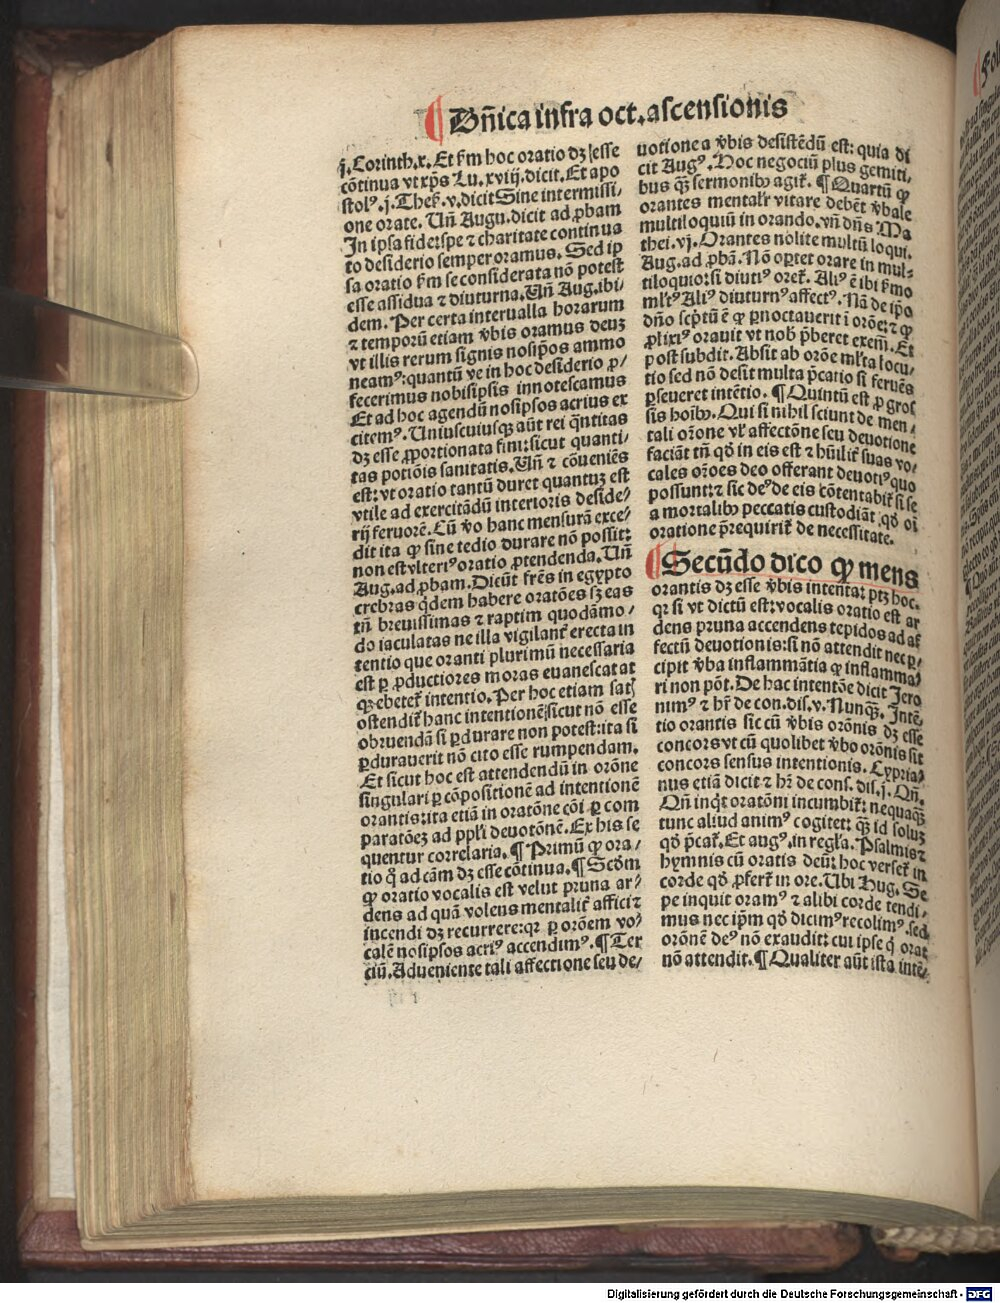 ¶ Dn̄ica infra oct. ascensionis
j. Corinth. x. Et ẜm hoc oratio dꝫ esse
cōtinua vt xp̄s Lu. xviij. dicit. Et apo
stolꝰ. j. Theẜ. v. dicit Sine intermissi⸗
one orate. Un̄ Augu. dicit ad ꝓbam
In ipsa fide rspe ⁊ charitate continua
to desiderio semper oramus. Sed ip
sa oratio ẜm se considerata nō potest
esse assidua ⁊ diuturna. Un̄ Aug. ibi⸗
dem. Per certa interualla horarum
⁊ temporū etiam v̄bis oramus deuꝫ
vt illis rerum signis nosip̄os ammo
neamꝰ: quantū ve in hoc desiderio ꝓ⸗
fecerimus nobisipsis innotescamus
Et ad hoc agendū nosipsos acrius ex
citemꝰ. Uniuscuiusqꝫ aūt rei q̄ntitas
dꝫ esse ꝓportionata fini: sicut quanti⸗
tas potiōis sanitatis. Un̄ ⁊ cōueniēs
est: vt oratio tantū duret quantuꝫ est
vtile ad exercitādū interioris deside⸗
rij feruorē. Cū v̄o hanc mensurā exce⸗
dit ita ꝙ sine tedio durare nō possit:
non est vlteriꝰ oratio ꝓtendenda. Un̄
Aug. ad ꝓbam. Dicūt fr̄es in egypto
crebras q̄dem habere oratōes sꝫ eas
tn̄ breuissimas ⁊ raptim quodāmo⸗
do iaculatas ne illa vigilanṫ erecta in
tentio que oranti plurimū necessaria
est ꝑ ꝓductiores moras euanescat at
qꝫ hebeteṫ intentio. Per hoc etiam satꝭ
ostendiṫ hanc intentionē sicut nō esse
obruendā si ꝑdurare non potest: ita si
ꝑdurauerit nō cito esse rumpendam.
Et sicut hoc est attendendū in orōne
singulari ꝑ cōpositionē ad intentionē
orantis: ita etiā in oratōne cōi ꝑ com
paratōeꝫ ad ppl'i deuotōnē. Ex his se
quentur correlaria. ¶ Primū ꝙ ora⸗
tio q̊ ad cām dꝫ esse cōtinua. ¶ Scd̄m
ꝙ oratio vocalis est velut pruna ar⸗
dens ad quā volens mentaliṫ affici ⁊
incendi dꝫ recurrere: qꝛ ꝑ orōem vo⸗
calē nosipsos acriꝰ accendimꝰ. ¶ Ter
ciū. Adueniente tali affectione seu de⸗
uotione a v̄bis desistēdū est: quia di
cit Augꝰ. Hoc negociū plus gemiti⸗
bus qꝫ sermonibꝰ agiṫ. ¶ Quartū ꝙ
orantes mentalr̄ vitare debēt v̄bale
multiloquiū in orando. vn̄ dn̄s Ma
thei. vj. Orantes nolite multū loqui.
Aug. ad ꝓbā. Nō oportet orare in mul⸗
tiloquio: si diutiꝰ oreṫ. Aliꝰ ē ibi ẜmo
ml'tꝰ Aliꝰ diuturnꝰ affectꝰ. Nā de ip̄o
dn̄o sc̄ptū ē ꝙ ꝑnoctauerit ī orōe: ⁊ ꝙ
ꝓlixiꝰ orauit vt nob̄ p̄beret exem̄. Et
post subdit. Absit ab orōe ml'ta locu⸗
tio sed nō desit multa p̄catio si feruēs
ꝑseueret intētio. ¶ Quintū est ꝓ gros
sis hoībꝰ. Qui si nihil sciunt de men⸗
tali orōne vl' affectōne seu deuotione
faciāt tn̄ qd̄ in eis est ⁊ hūiliṫ suas vo⸗
cales orōes deo offerant deuotiꝰ quo
possunt: ⁊ sic deꝰ de eis cōtentabiṫ si se
a mortalibꝰ peccatis custodiāt qd̄ oī
oratione p̄requiriṫ de necessitate.
¶ Secūdo dico ꝙ mens
orantis dꝫ esse v̄bis intenta: ptꝫ hoc.
qꝛ si vt dictū est: vocalis oratio est ar
dens pruna accendens tepidos ad af
fectū deuotionis: si nō attendit nec ꝑ⸗
cipit v̄ba inflammātia ꝙ inflamma⸗
ri non pōt. De hac intentōe dicit Jero
nimꝰ ⁊ hr̄ de con. dis. v. Nunqꝫ. Intē⸗
tio orantis sic cū v̄bis orōnis dꝫ esse
concors vt cū quolibet v̄bo orōnis sit
concors sensus intentionis. Cypria⸗
nus etiā dicit ⁊ hr̄ de cons. dis. j. Qn̄.
Qn̄ inq̄t oratōni incumbiṫ: nequaqꝫ
tunc aliud animꝰ cogitet: qꝫ id soluꝫ
qd̄ p̄caṫ. Et augꝰ. in regl'a. Psalmis ⁊
hymnis cū oratis deū: hoc verseṫ in
corde qd̄ ꝓferṫ in ore. Ubi Hug. Se
pe inquit oramꝰ ⁊ alibi corde tendi⸗
mus nec ip̄m qd̄ dicimꝰ recolimꝰ. sed
orōnē deꝰ nō exaudit: cui ipse q̇ orat
nō attendit. ¶ Qualiter aūt ista intē⸗
Digitalisierung gefördert durch die Deutsche Forschungsgemeinschaft - DFG